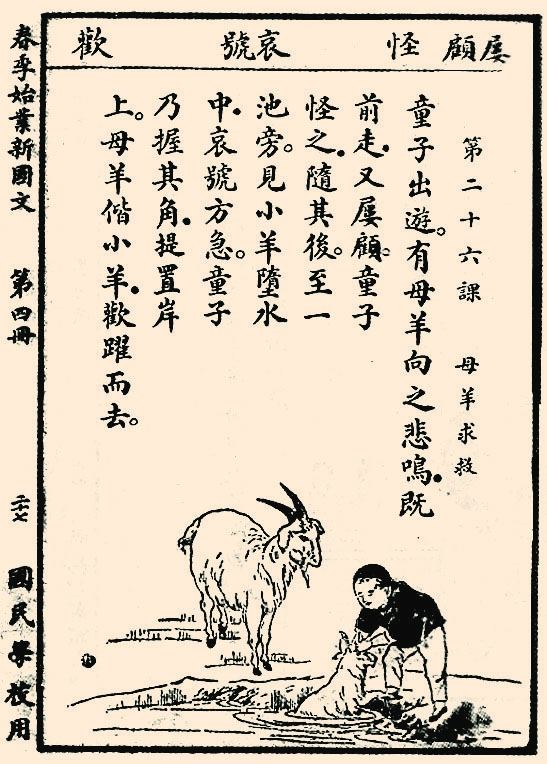 屢顧 怪 哀號 歡
第二十六課 母羊求救
童子出遊。有母羊向之悲鳴。既
前走。又屢顧。童子
怪之。隨其後。至一
池旁。見小羊墮水
中。哀號方急。童子
乃握其角。提置岸
上。母羊偕小羊。歡躍而去。
春季始業新國文 第四冊 二十七 國民學校用